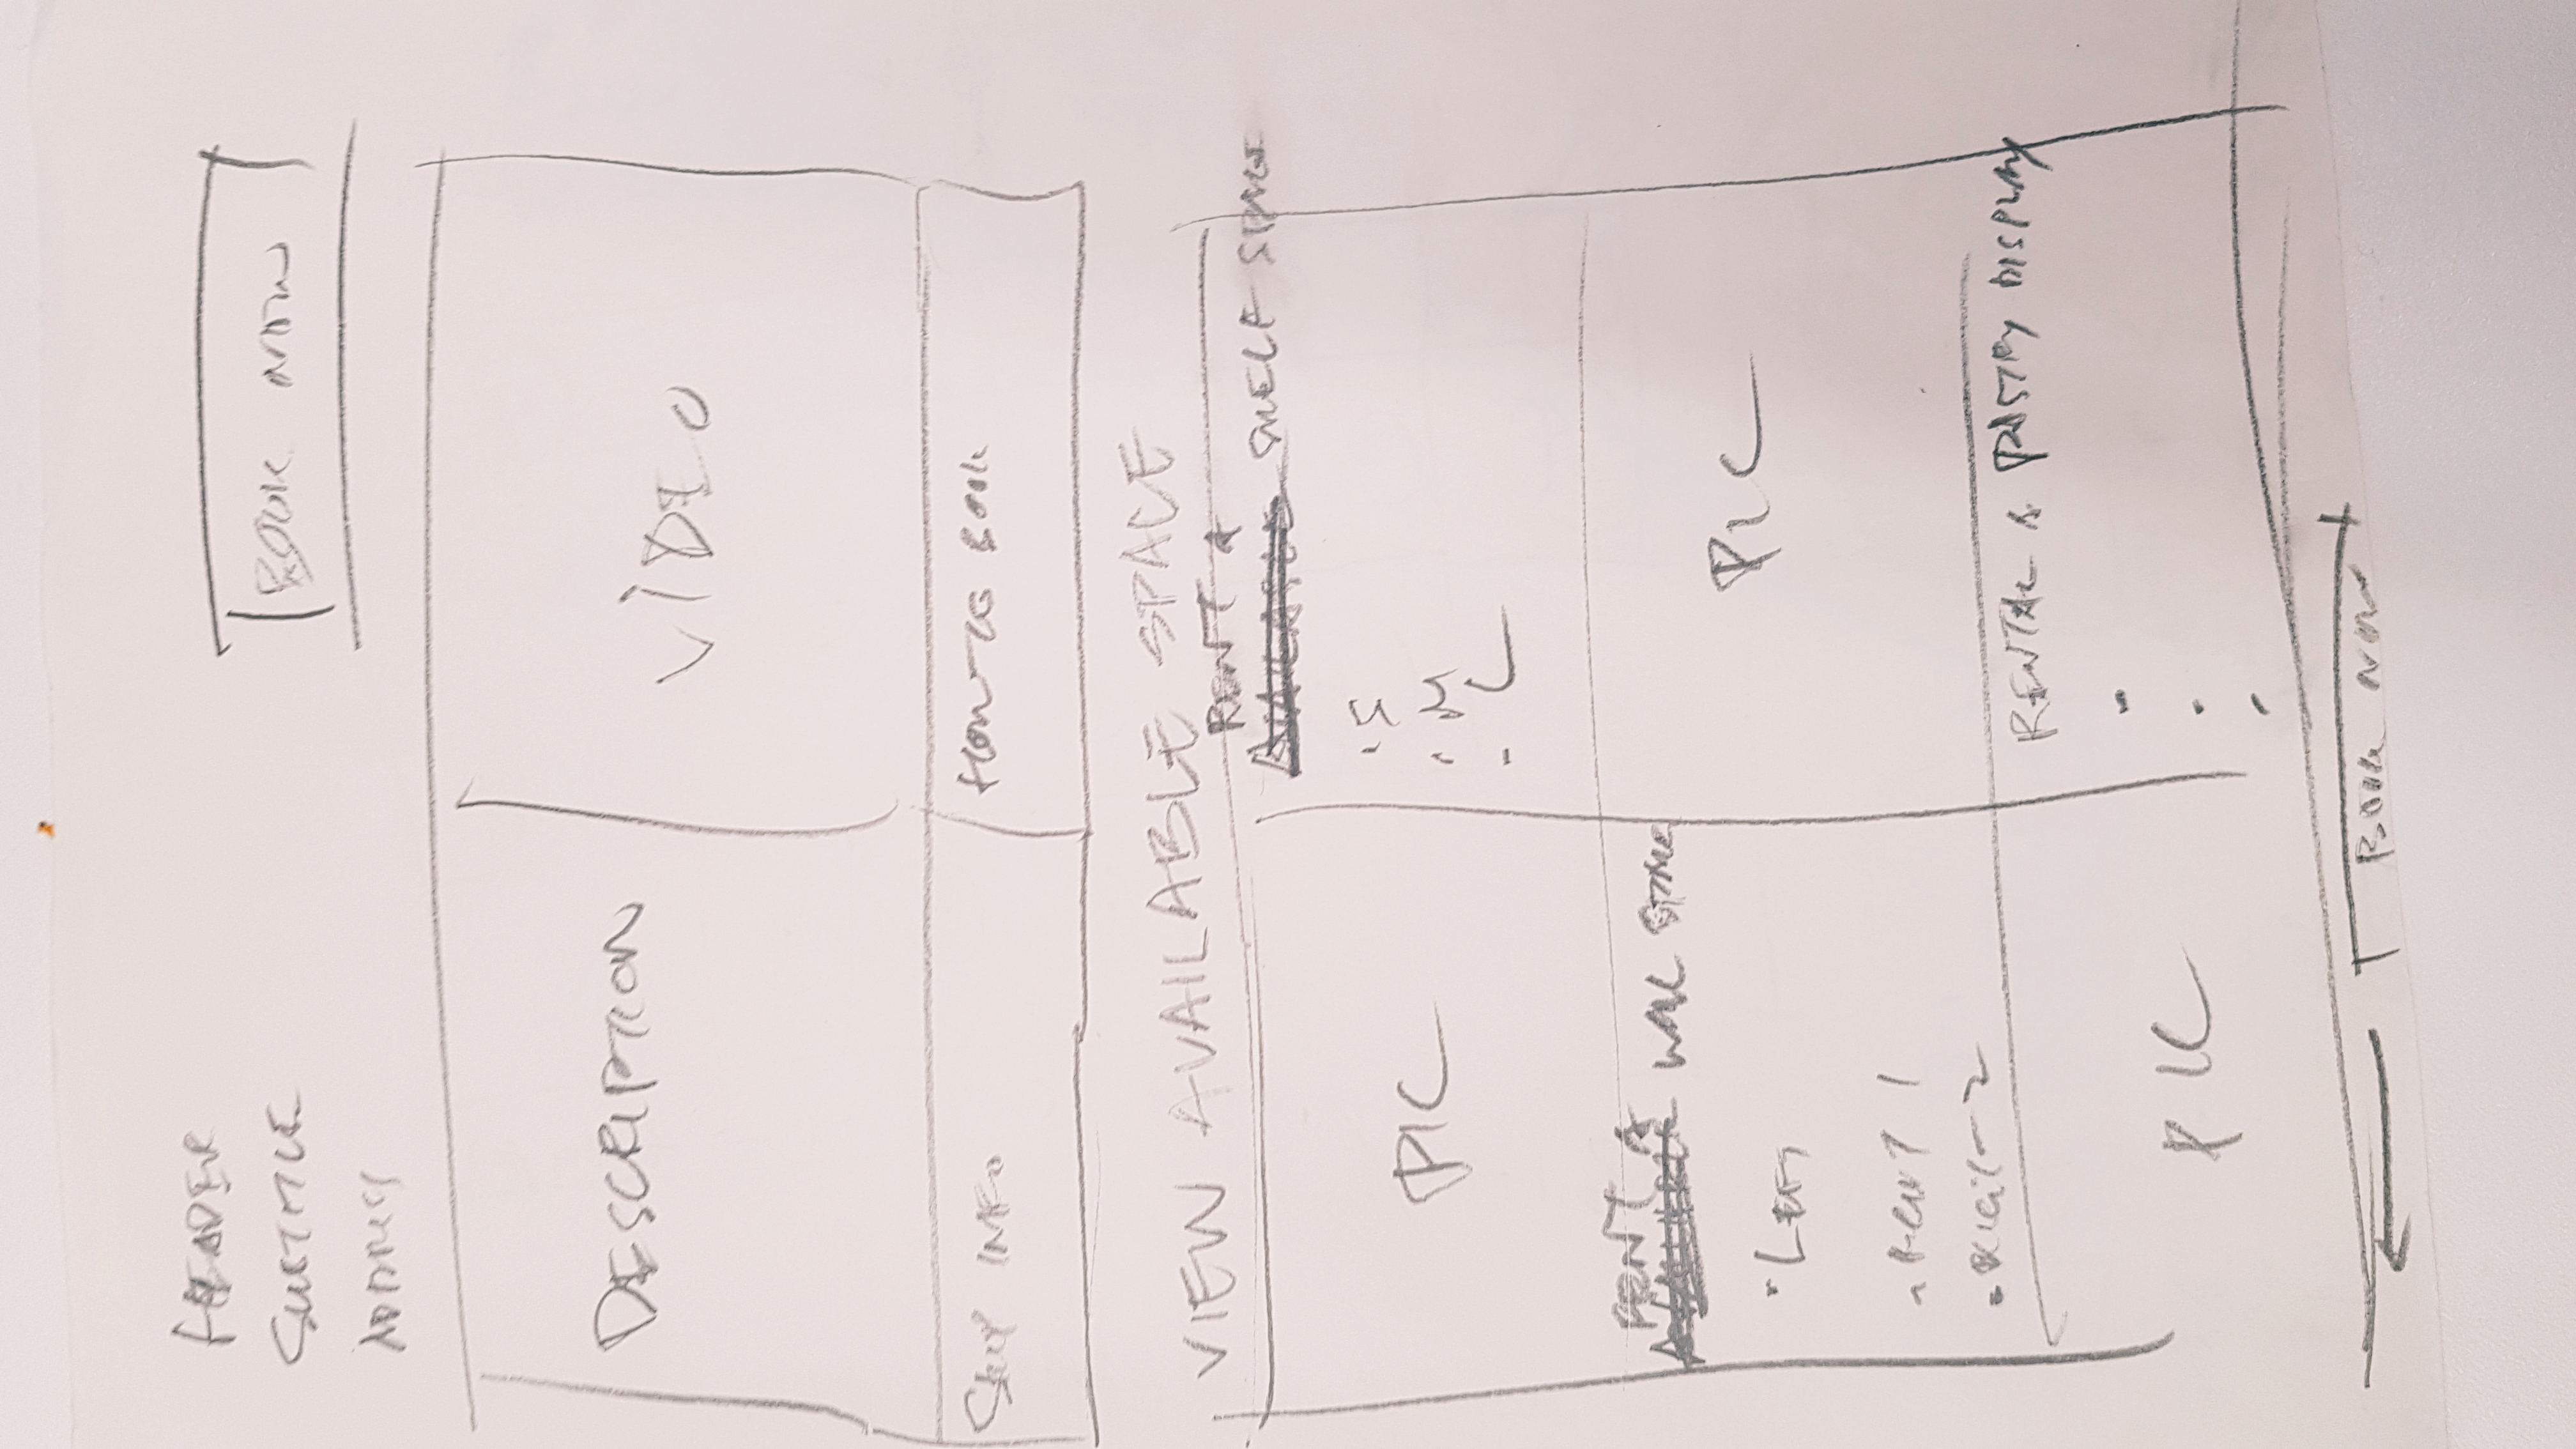 HEADER
SUBTITLE
ADDRESS
BOOK NOW
DESCRIPTION
VIDEO
SHOP INFO
HOW TO BOOK
VIEW AVAILABLE SPACE
PIC
RENT A
AVAILABLE SHELF SPACE
· S
· M
- L
RENT A
AVAILABLE WALL SPACE
· LEFT
- RIGHT 1
· RIGHT 2
PIC
PIC
RENTAL A PASTRY DISPLAY
BOOK NOW